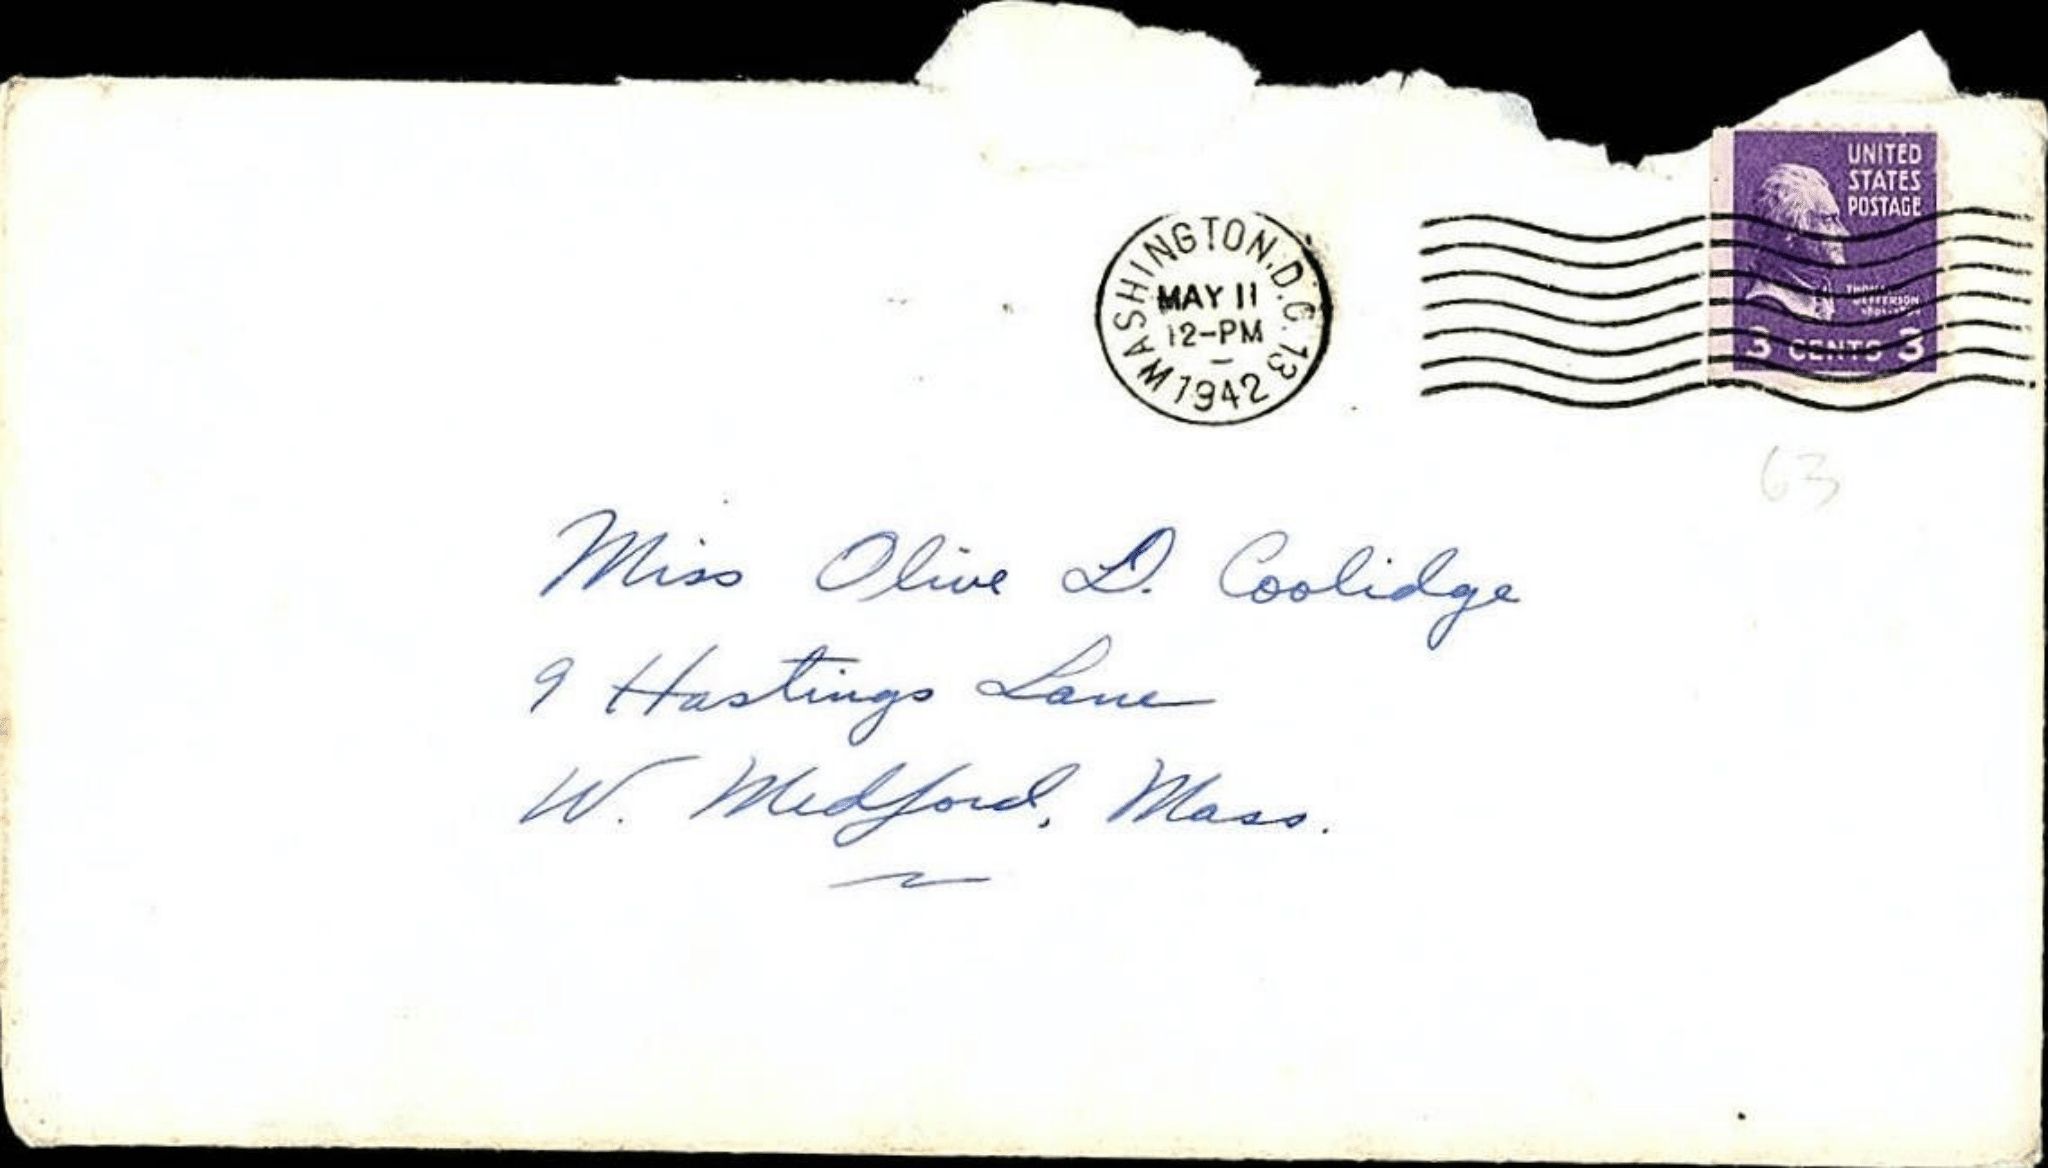 UNITED
STATES
POSTAGE
WASHINGTON, D.C. 13
MAY 11
12-PM
1942
JEFFERSON
3 CENTS 3
63
Miss Olive D. Coolidge
9 Hastings Lane
W. Medford, Mass.